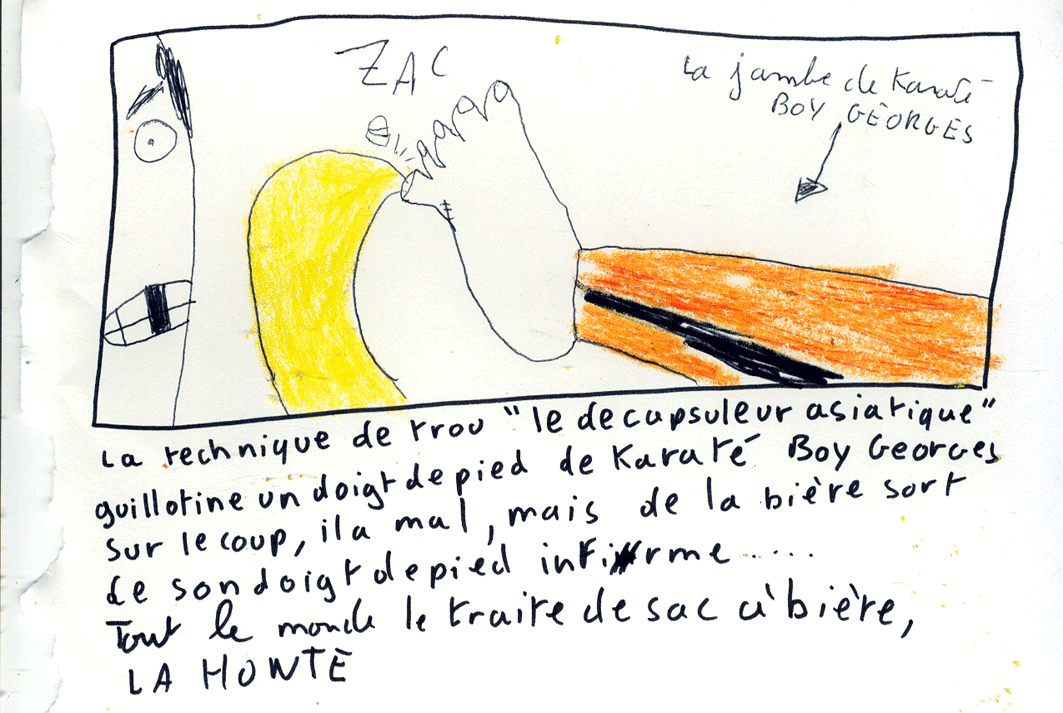 ZAC
La jambe de Karaté
BOY GÈORGES
La technique de trou "le decapsuleur asiatique"
guillotine un doigt de pied de Karaté Boy Georges
sur le coup, il a mal, mais de la bière sort
de son doigt de pied infirme.....
Tout le monde le traite de sac à bière,
LA HONTÈ